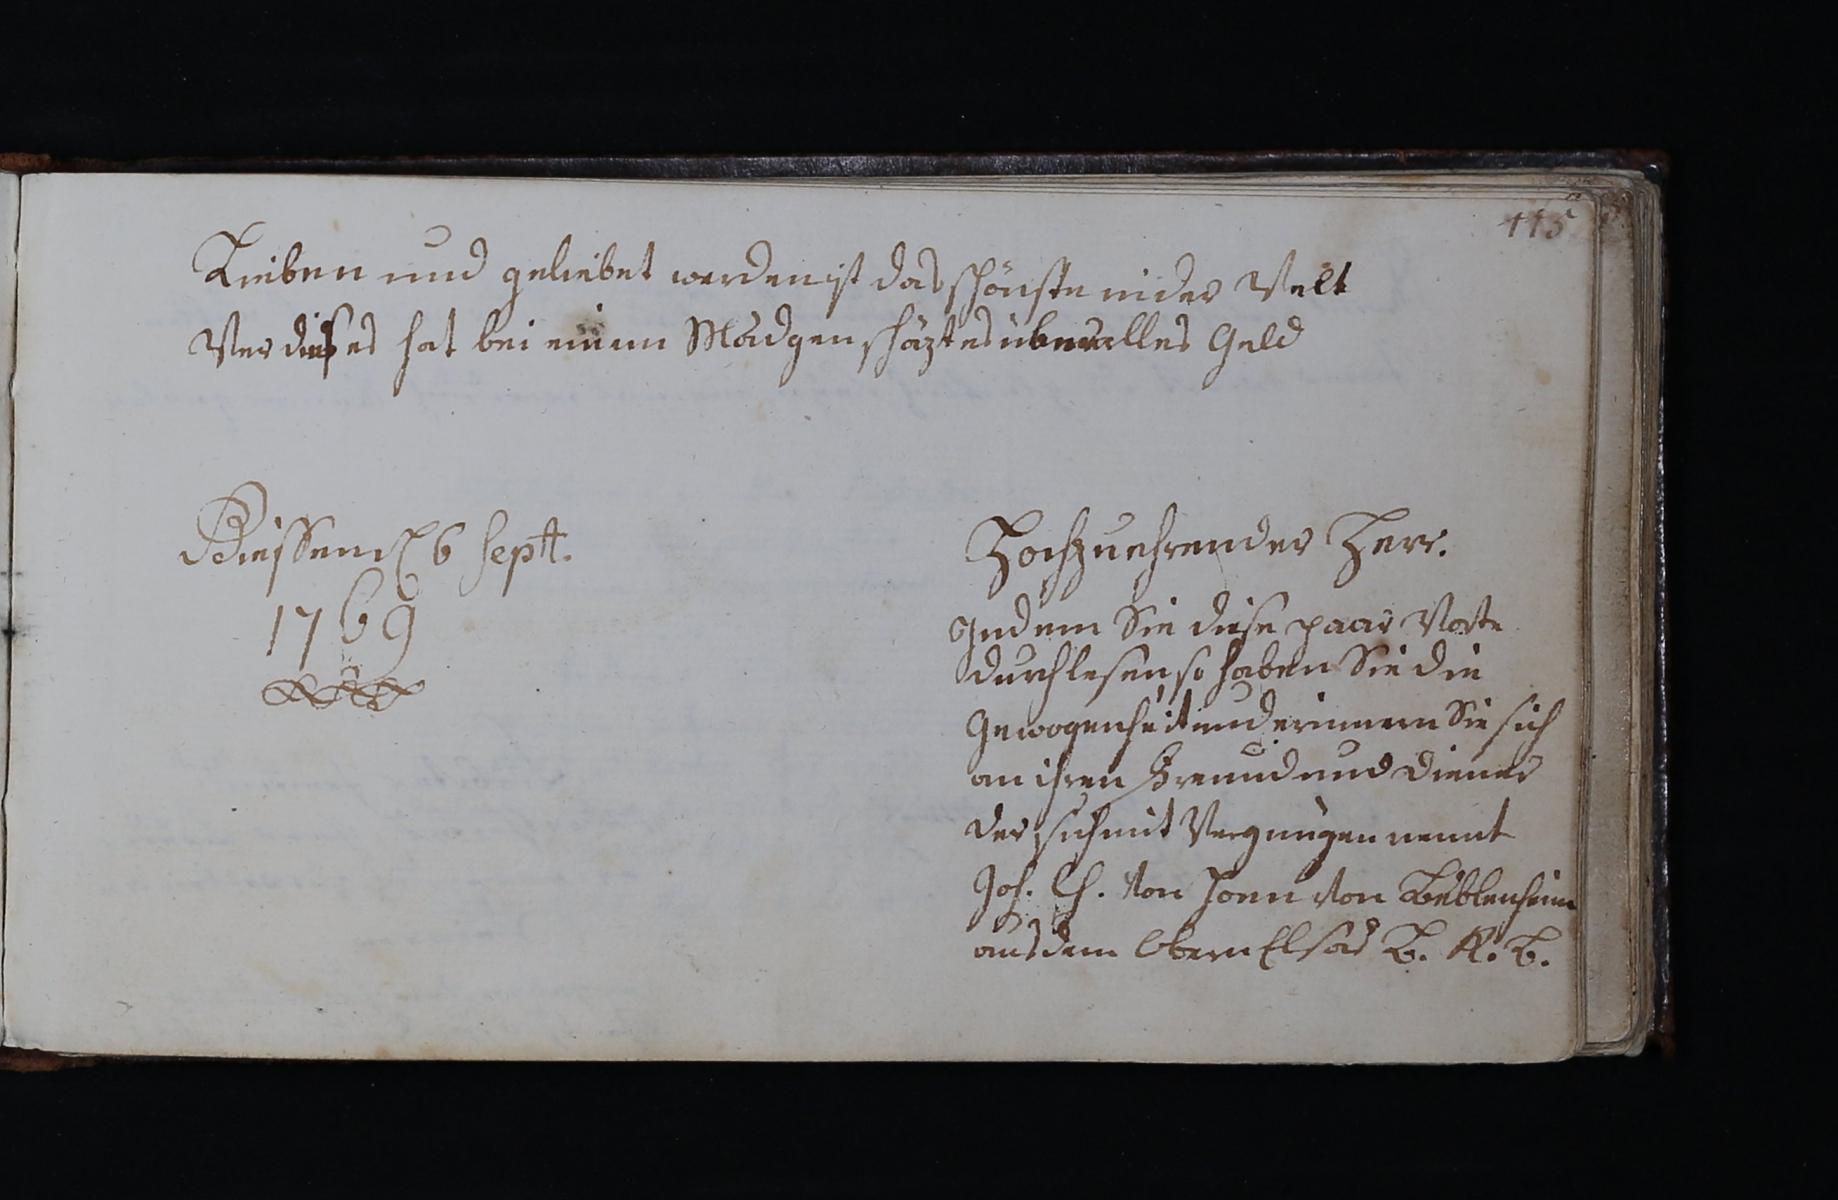 115
Lieben und geliebet werden ist das schönste in der Welt
Wer dieses hat bei einem Mädgen schäzt es über alles Geld
Giessen d 6 Sept.
1769
Hochzuehrender Herr.
Indem Sie diese paar Worte
durchlesen, so haben Sie die
Gewogenheit und erinnern Sie sich
an ihren Freund und Diener
der sich mit Vergnügen nennt
Joh. Ch. von
von Beblenheim
aus dem Obern Elsas B. R. B.